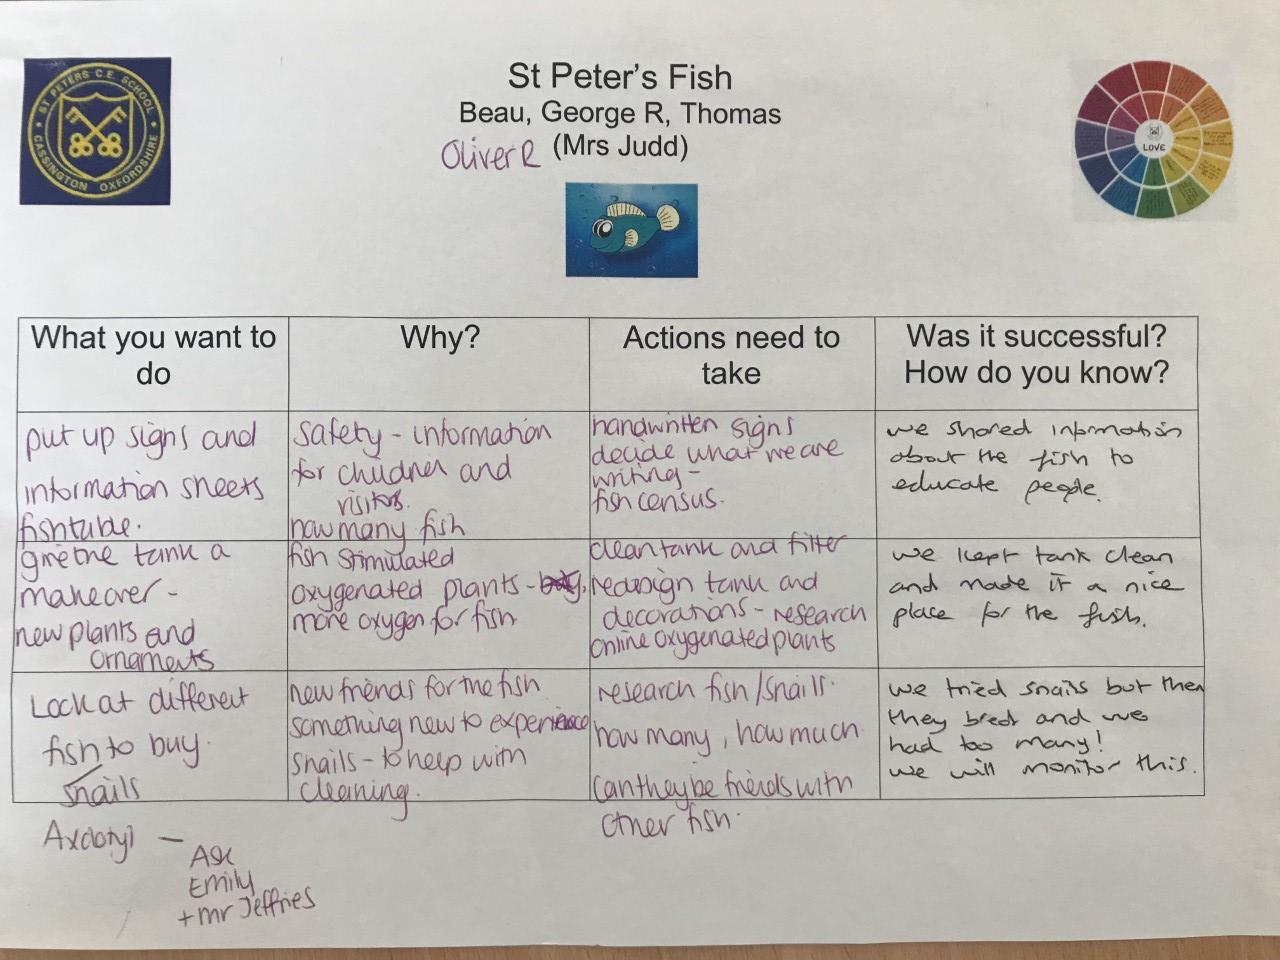 ST PETERS C.E. SCHOOL
CASSINGTON OXFORDSHIRE
St Peter's Fish
Beau, George R, Thomas
Oliver R (Mrs Judd)
LOVE
What you want to do
Why?
Actions need to take
Was it successful?
How do you know?
put up signs and
information sheets
fishtube.
safety - information
for children and
visitors.
how many fish
handwritten signs
decide what we are
writing -
fish census.
we shared information
about the fish to
educate people.
give the tank a
makeover -
new plants and
ornaments
fish stimulated
oxygenated plants -
more oxygen for fish
clean tank and filter
redesign tank and
decorations - research
online oxygenated plants
we kept tank clean
and made it a nice
place for the fish.
Look at different
fish to buy.
snails
new friends for the fish
something new to experience
snails - to help with
cleaning.
research fish/snails.
how many, how much
can they be friends with
other fish.
we tried snails but then
they bred and we
had too many!
we will monitor this.
Axolotyl -
Ask
Emily
+ mr Jeffries